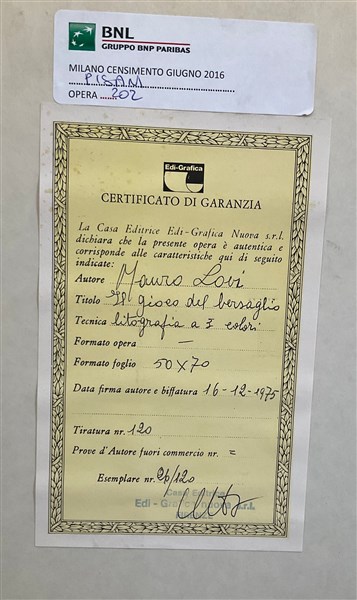 BNL
GRUPPO BNP PARIBAS
MILANO CENSIMENTO GIUGNO 2016
PISANI
OPERA 202
Edi-Grafica
CERTIFICATO DI GARANZIA
La Casa Editrice Edi-Grafica Nuova s.r.l.
dichiara che la presente opera è autentica e
corrisponde alle caratteristiche qui di seguito
indicate:
Autore Mauro Lovi
Titolo Il gioco del bersaglio
Tecnica litografia a 7 colori
Formato opera —
Formato foglio 50x70
Data firma autore e biffatura 16-12-1975
Tiratura nr. 120
Prove d'Autore fuori commercio nr. =
Esemplare nr. /120
Casa Editrice
Edi - Grafica Nuova s.r.l.